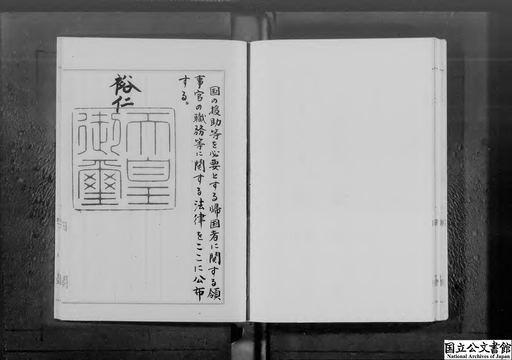 国の援助等を必要とする帰国者に関する領
事官の職務等に関する法律をここに公布
する。
裕仁
天皇
御璽
国立公文書館
National Archives of Japan